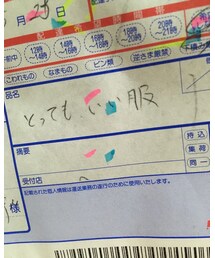 月 23
配達指定時間帯
午前中
12時〜14時
14時〜16時
16時〜18時
18時〜20時
20時〜21時
こわれもの
なまもの
ビン類
逆さま厳禁
下積み
品名
とっても いい服
摘要
持込
集荷
同一
受付店
記載された個人情報は運送業務の遂行のために使用いたします。
様